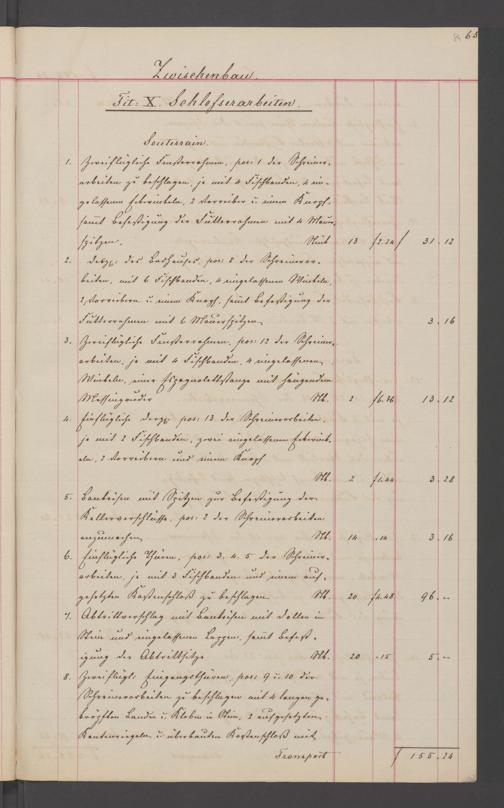 65
Zwischenbau.
Tit: X. Schlosserarbeiten.
Souterrain.
1. Zweiflüglige Fensterrahmen, pos: 1 der Schreiner-
arbeiten zu beschlagen, je mit 4 Fischbanden, 4 ein-
gelassenen 2 Vorreiber u. einem Knopf,
samt Befestigung der Futterrahmen mit 4 Mauer-
spitzen. Stük 13 f 2.24 f 31.12
2. des pos: 8 der Schreinerar-
beiten, mit 6 Fischbanden, 4 eingelassenen Winkeln,
2 Vorreibern u. einem Knopf, samt Befestigung der
Futterrahmen mit 6 Mauerspitzen. 3.16
3. Zweiflüglige Fensterrahmen, pos: 12 der Schreiner-
arbeiten, je mit 4 Fischbanden, 4 eingelassenen
Winkeln, einer Espagnolettstange mit hängendem
Messingruder St. 2 f 6.36 13.12
4. Einflüglige pos: 13 der Schreinerarbeiten,
je mit 2 Fischbanden, zwei eingelassenen
2 Vorreibern und einem Knopf
St. 2 f 1.44 3.28
5. Bandeisen mit Spitzen zur Befestigung der
Kellerverschlüsse, pos: 2 der Schreinerarbeiten
anzumachen St. 14 .14 3.16
6. Einflüglige Thüren, pos: 3. 4. 5 der Schreiner-
arbeiten, je mit 3 Fischbanden und einem auf-
gesetzten Kastenschloß zu beschlagen St. 20 f 4.48 96.--
7. Abtrittverschlag mit Bandeisen mit Dollen in
Stein und eingelassenen Lappen, samt Befest-
igung der Abtrittsitze St. 20 .15 5.--
8. Zweiflügl: Eingangsthüren, pos: 9 u. 10 der
Schreinerarbeiten zu beschlagen mit 4 langen ge-
kröpften Banden u. Kloben in Stein, 2 aufgesetzten
Kantenriegeln u. überbauten Kastenschloß mit
Transport f 155.24